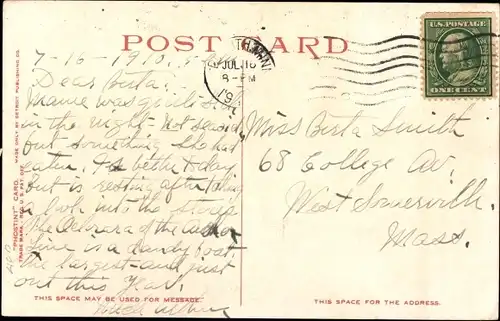 POST CARD
7-16-1910.
JUL 16
8-PM
U.S. POSTAGE
ONE CENT
Dear Berta.
Mame was quite sick
in the night. Not seasick
but something she had
eaten. Is better today
but is resting after taking
a look into the stores
The of the
Line is a dandy boat.
the largest and just
out this year.
Miss Berta Smith
68 College Av.
West Somerville.
Mass.
"PHOSTINT" CARD. MADE ONLY BY DETROIT PUBLISHING CO.
TRADE MARK. REG. U.S. PAT. OFF.
THIS SPACE MAY BE USED FOR MESSAGE.
THIS SPACE IS FOR THE ADDRESS.